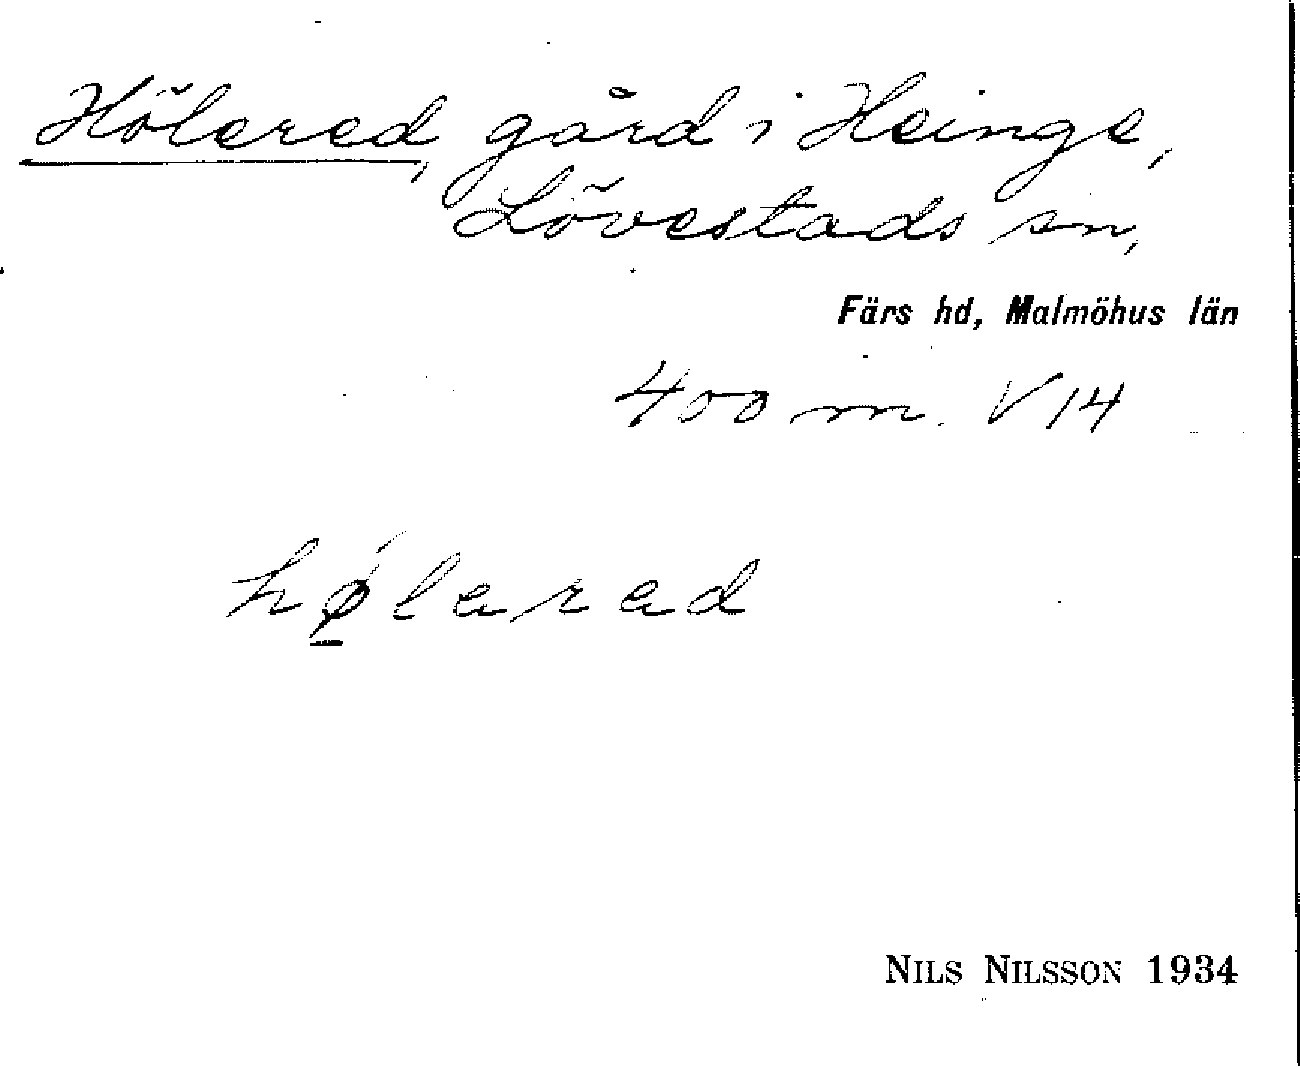 Hölered, gård i Heinge,
Lövestads sn,
Färs hd, Malmöhus län
400 m. V 14
hǿ̱larad
NILS NILSSON 1934